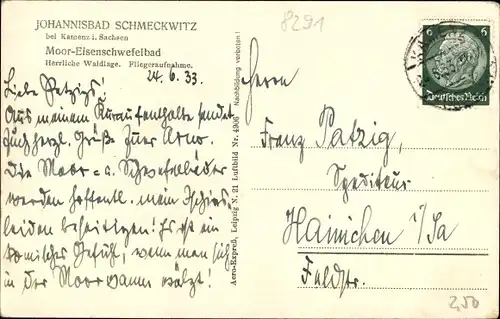 JOHANNISBAD SCHMECKWITZ
bei Kamenz i. Sachsen
Moor-Eisenschwefelbad
Herrliche Waldlage. Fliegeraufnahme.
24. 6. 33.
Liebe Patzigs!
Aus meinem Kuraufenthalte sendet
Euch herzl. Grüße Euer Arno.
Die Moor- u. Schwefelbäder
werden hoffentl. mein Ischias-
leiden beseitigen! Es ist ein
komisches Gefühl, wenn man sich
in der Moorwanne wälzt!
Aero-Expreß, Leipzig N. 21 Luftbild Nr. 4906 Nachbildung verboten!
8291
6 6
Deutsches Reich
Herrn
Franz Patzig,
Spediteur
Hainichen i/Sa
Feldstr.
2,50